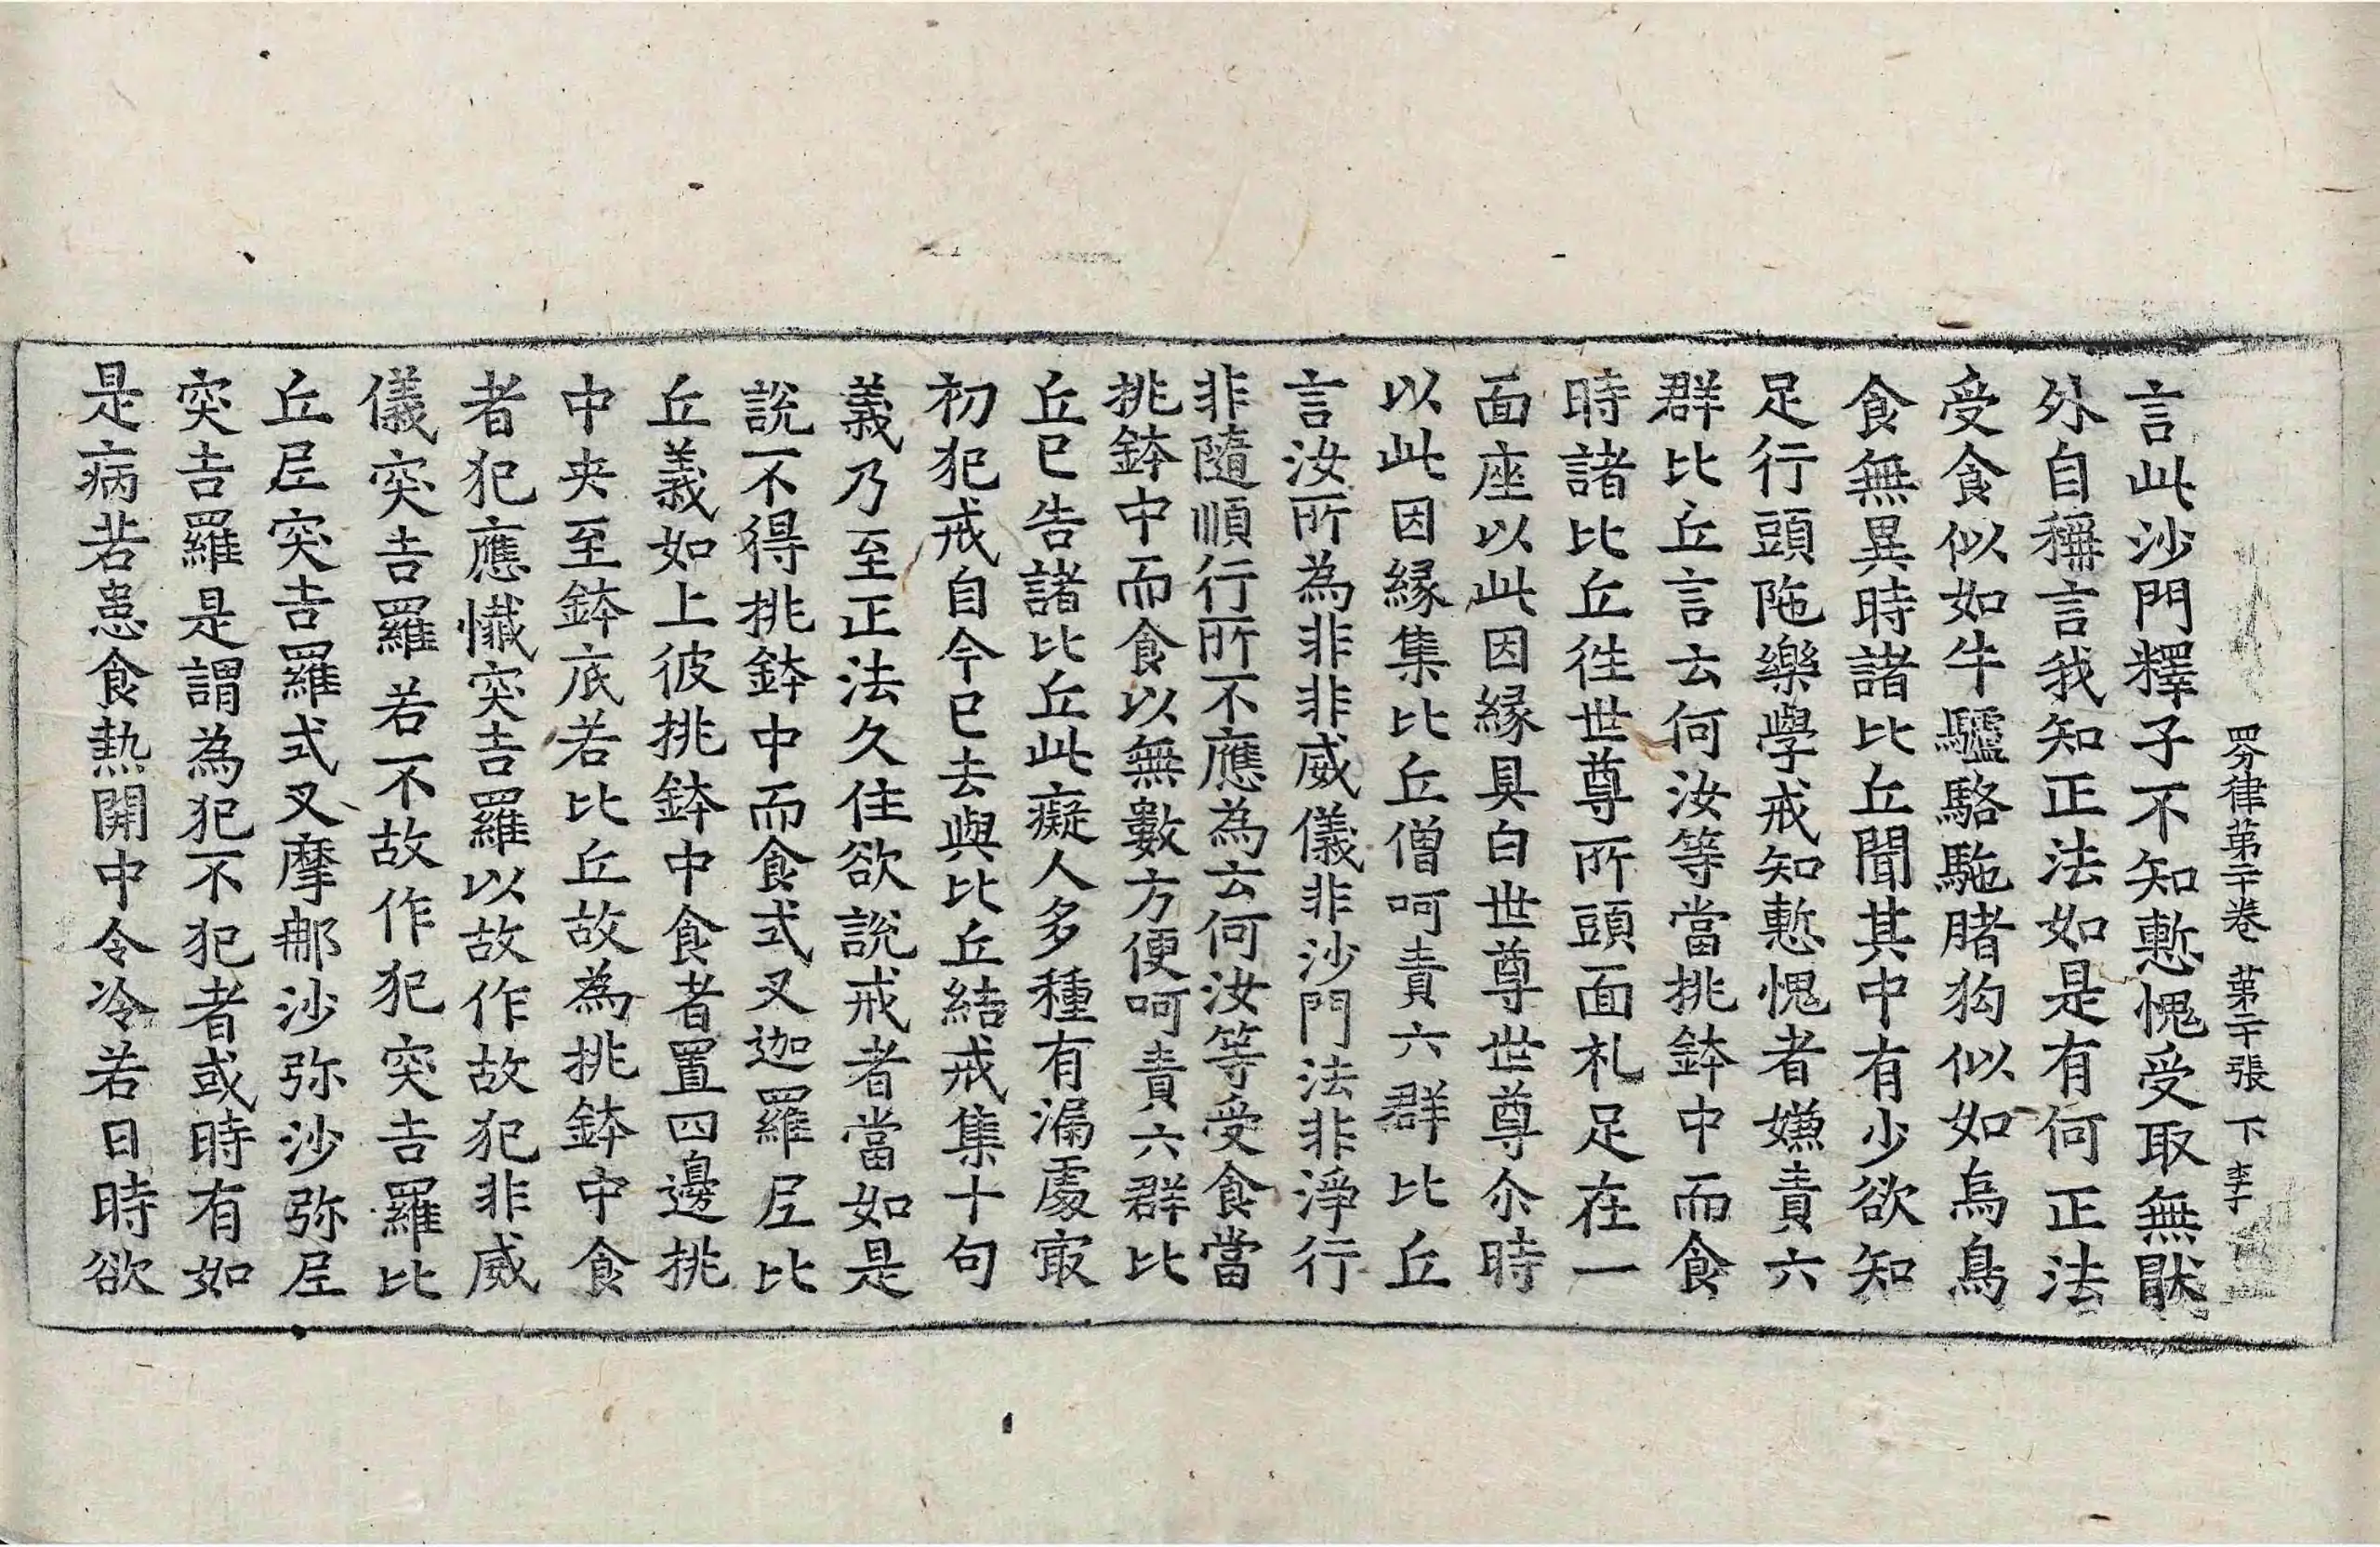 四分律第二十卷　第二十張　下　李丁
言此沙門釋子不知慙愧受取無猒
外自稱言我知正法如是有何正法
受食似如牛驢駱駞豬狗似如烏鳥
食無異時諸比丘聞其中有少欲知
足行頭陁樂學戒知慙愧者嫌責六
群比丘言云何汝等當挑鉢中而食
時諸比丘徃世尊所頭面礼足在一
面座以此因緣具白世尊世尊尒時
以此因緣集比丘僧呵責六群比丘
言汝所為非非威儀非沙門法非淨行
非隨順行所不應為云何汝等受食當
挑鉢中而食以無數方便呵責六群比
丘已告諸比丘此癡人多種有漏處冣
初犯戒自今已去與比丘結戒集十句
義乃至正法久住欲說戒者當如是
說不得挑鉢中而食式叉迦羅尼比
丘義如上彼挑鉢中食者置四邊挑
中央至鉢底若比丘故為挑鉢中食
者犯應懺突吉羅以故作故犯非威
儀突吉羅若不故作犯突吉羅比
丘尼突吉羅式叉摩那沙弥沙弥尼
突吉羅是謂為犯不犯者或時有如
是病若患食熱開中令冷若日時欲